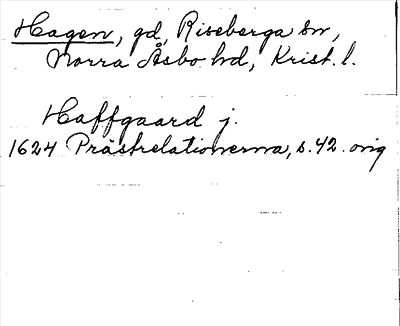 Hagen, gd, Riseberga sn,
Norra Åsbo hd, Krist. l.
Haffgaard j.
1624 Prästrelationerna, s. 42. orig